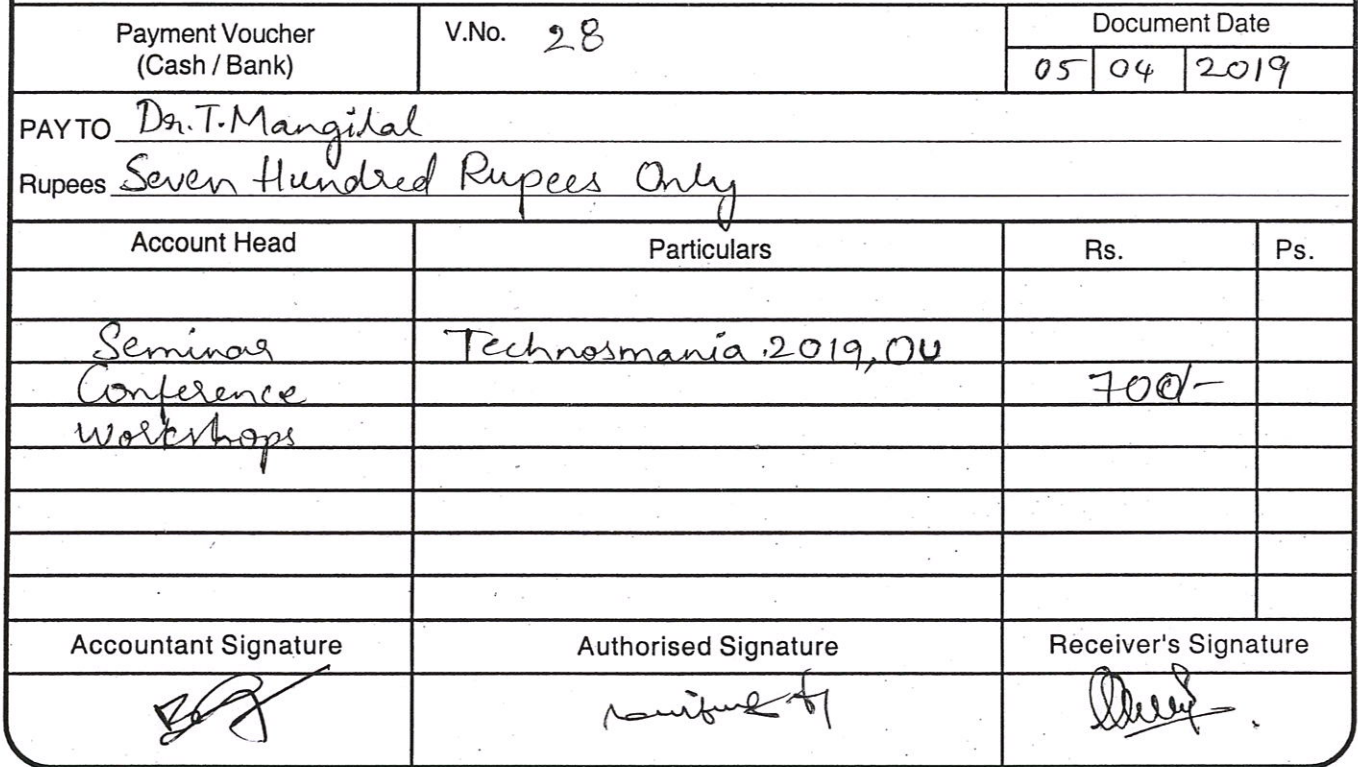 Payment Voucher
(Cash / Bank)
V.No. 28
Document Date
05 04 2019
PAY TO Dr. T. Mangilal
Rupees Seven Hundred Rupees Only
Account Head Particulars Rs. Ps.
Seminar Technosmania 2019, OU
Conference 700/-
Workshops
Accountant Signature Authorised Signature Receiver's Signature